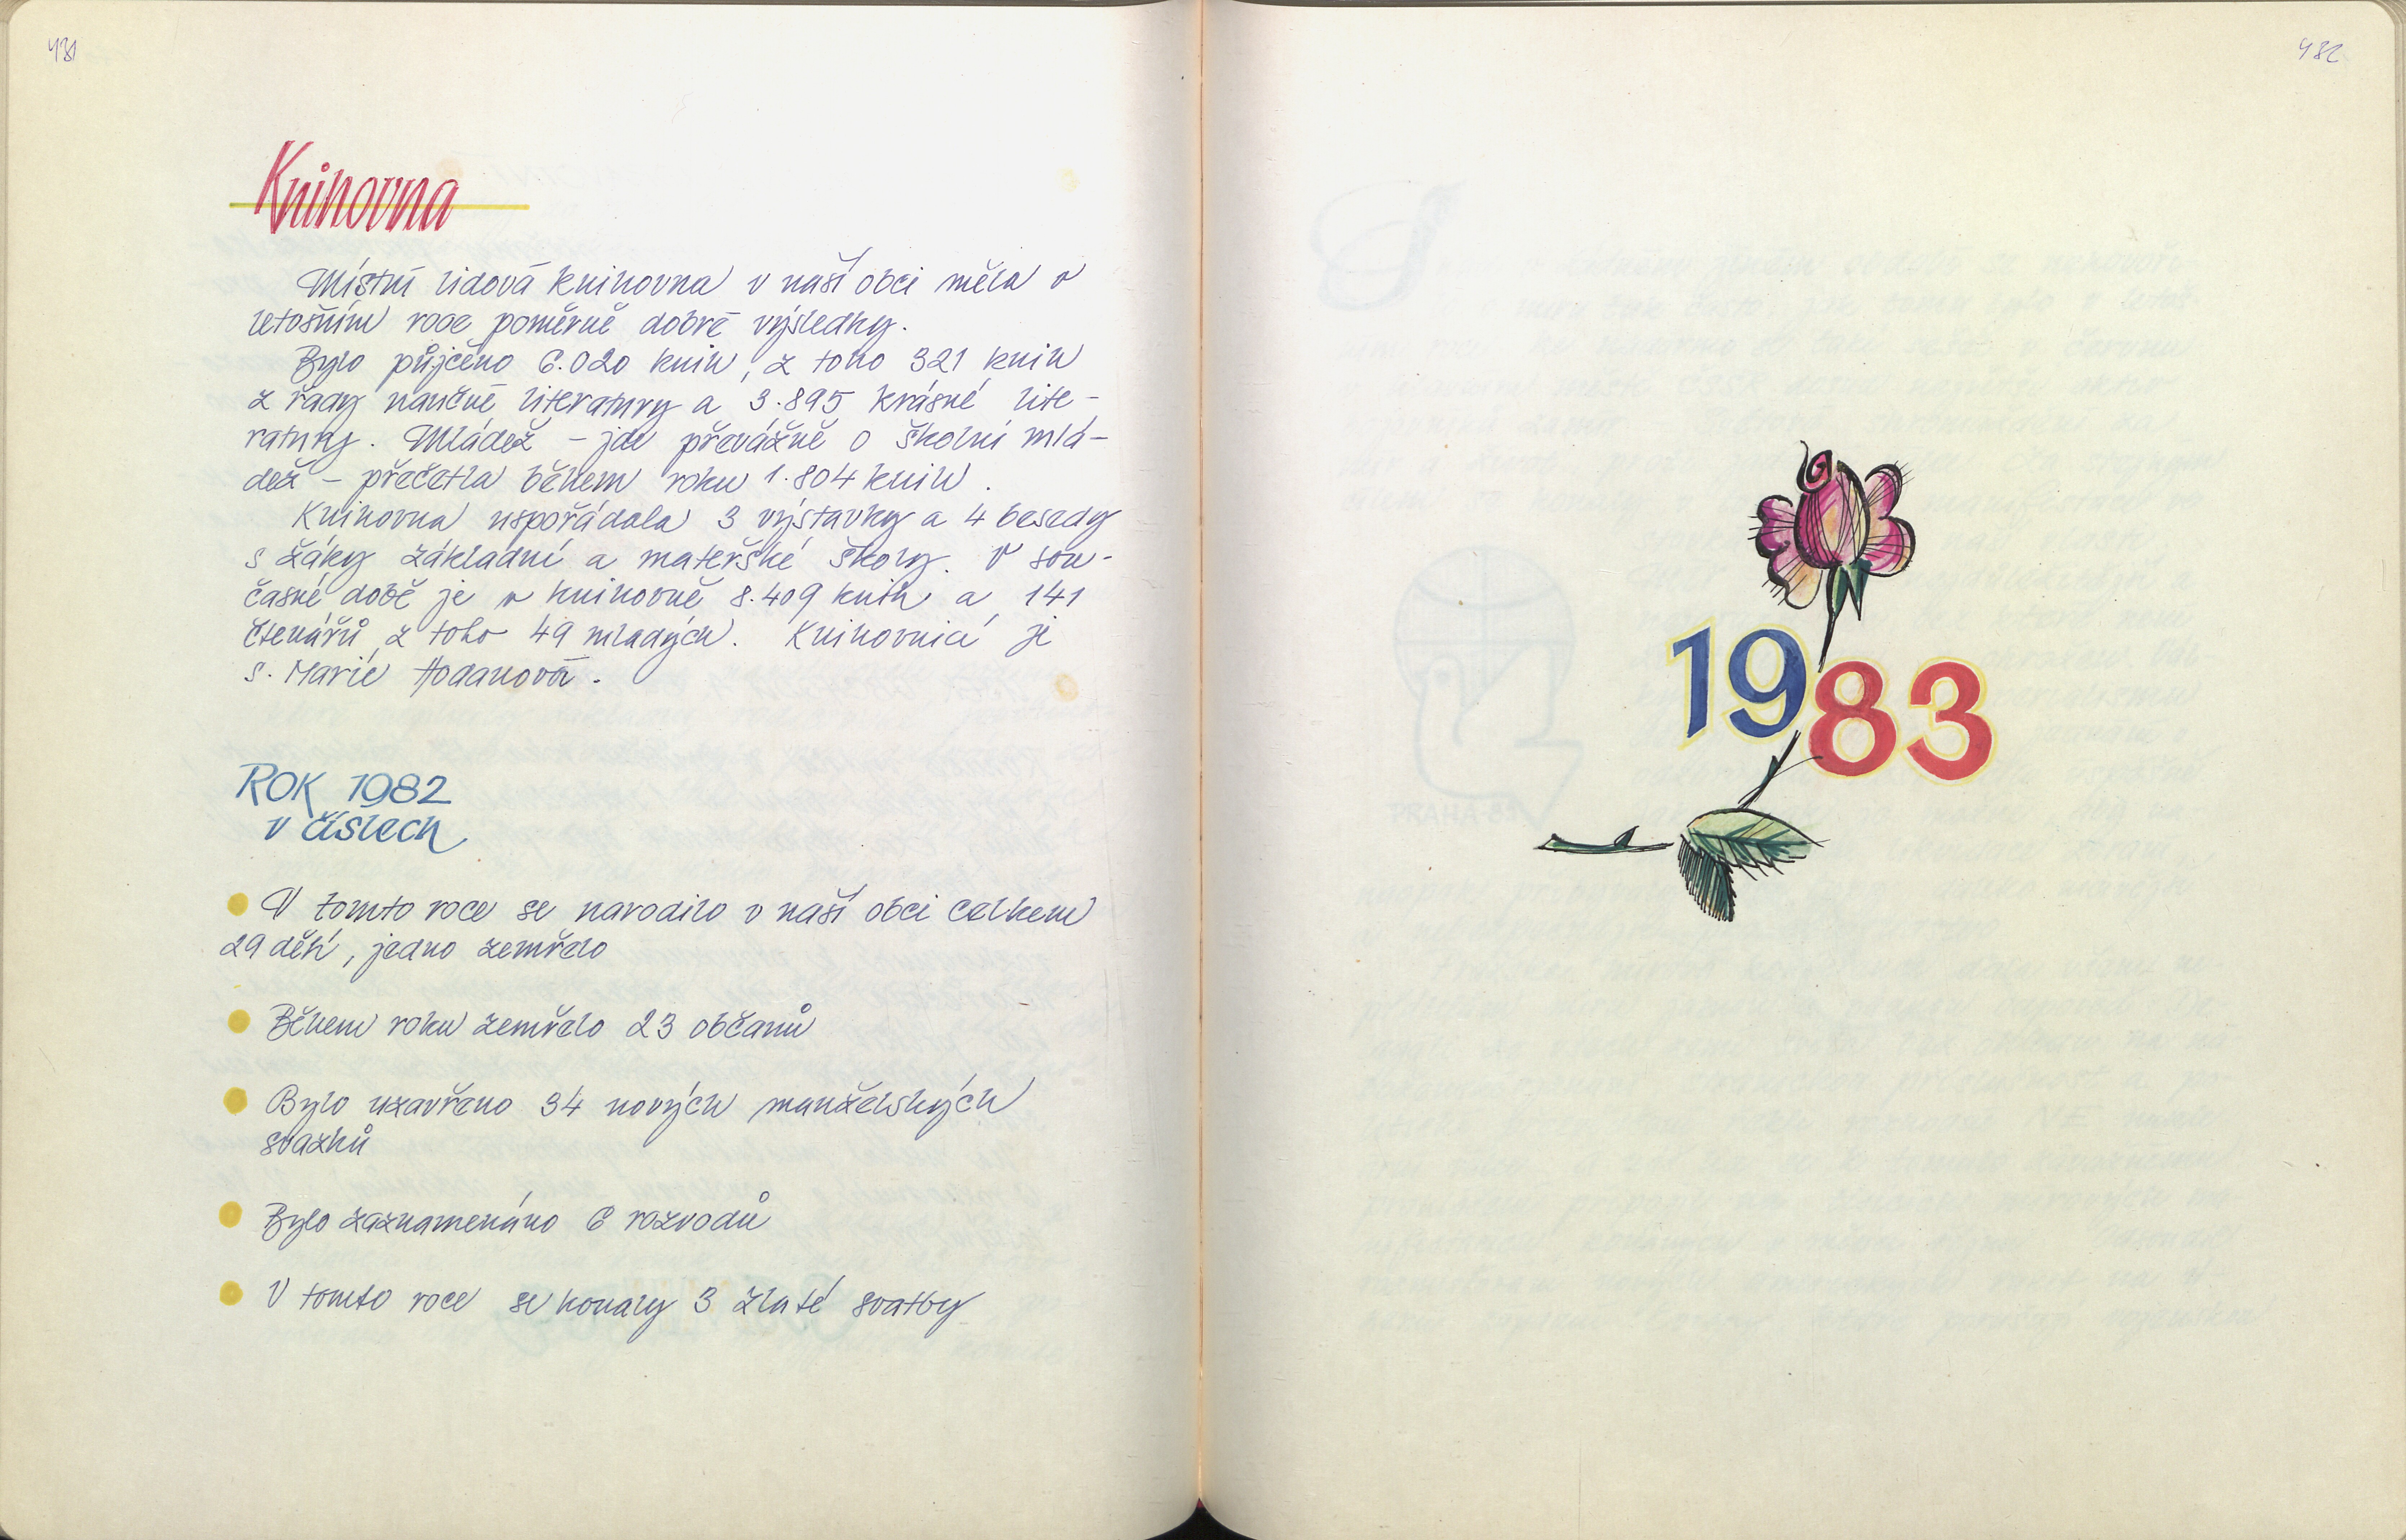 431
Knihovna
Místní lidová knihovna v naší obci měla v
letošním roce poměrně dobré výsledky.
Bylo půjčeno 6.020 knih, z toho 321 knih
z řady naučné literatury a 3.895 krásné lite-
ratury. Mládež – jde převážně o školní mlá-
dež – přečetla během roku 1.804 knih.
Knihovna uspořádala 3 výstavky a 4 besedy
s žáky základní a mateřské školy. V sou-
časné době je v knihovně 8.409 knih a 141
čtenářů, z toho 49 mladých. Knihovnicí je
s. Marie Hodanová.
ROK 1982
v číslech
V tomto roce se narodilo v naší obci celkem
29 dětí, jedno zemřelo
Během roku zemřelo 23 občanů
Bylo uzavřeno 34 nových manželských
svazků
Bylo zaznamenáno 6 rozvodů
V tomto roce se konaly 3 zlaté svatby
432
1983
PRAHA 83